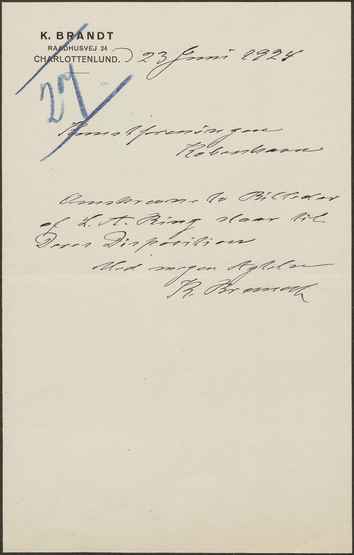 K. BRANDT
RAADHUSVEJ 24
CHARLOTTENLUND.
23 Juni 1928
27
Kunstforeningen
København
Omskrevne to Billeder
af L. A. Ring staar til
Deres Disposition
Med megen Agtelse
K. Brandt